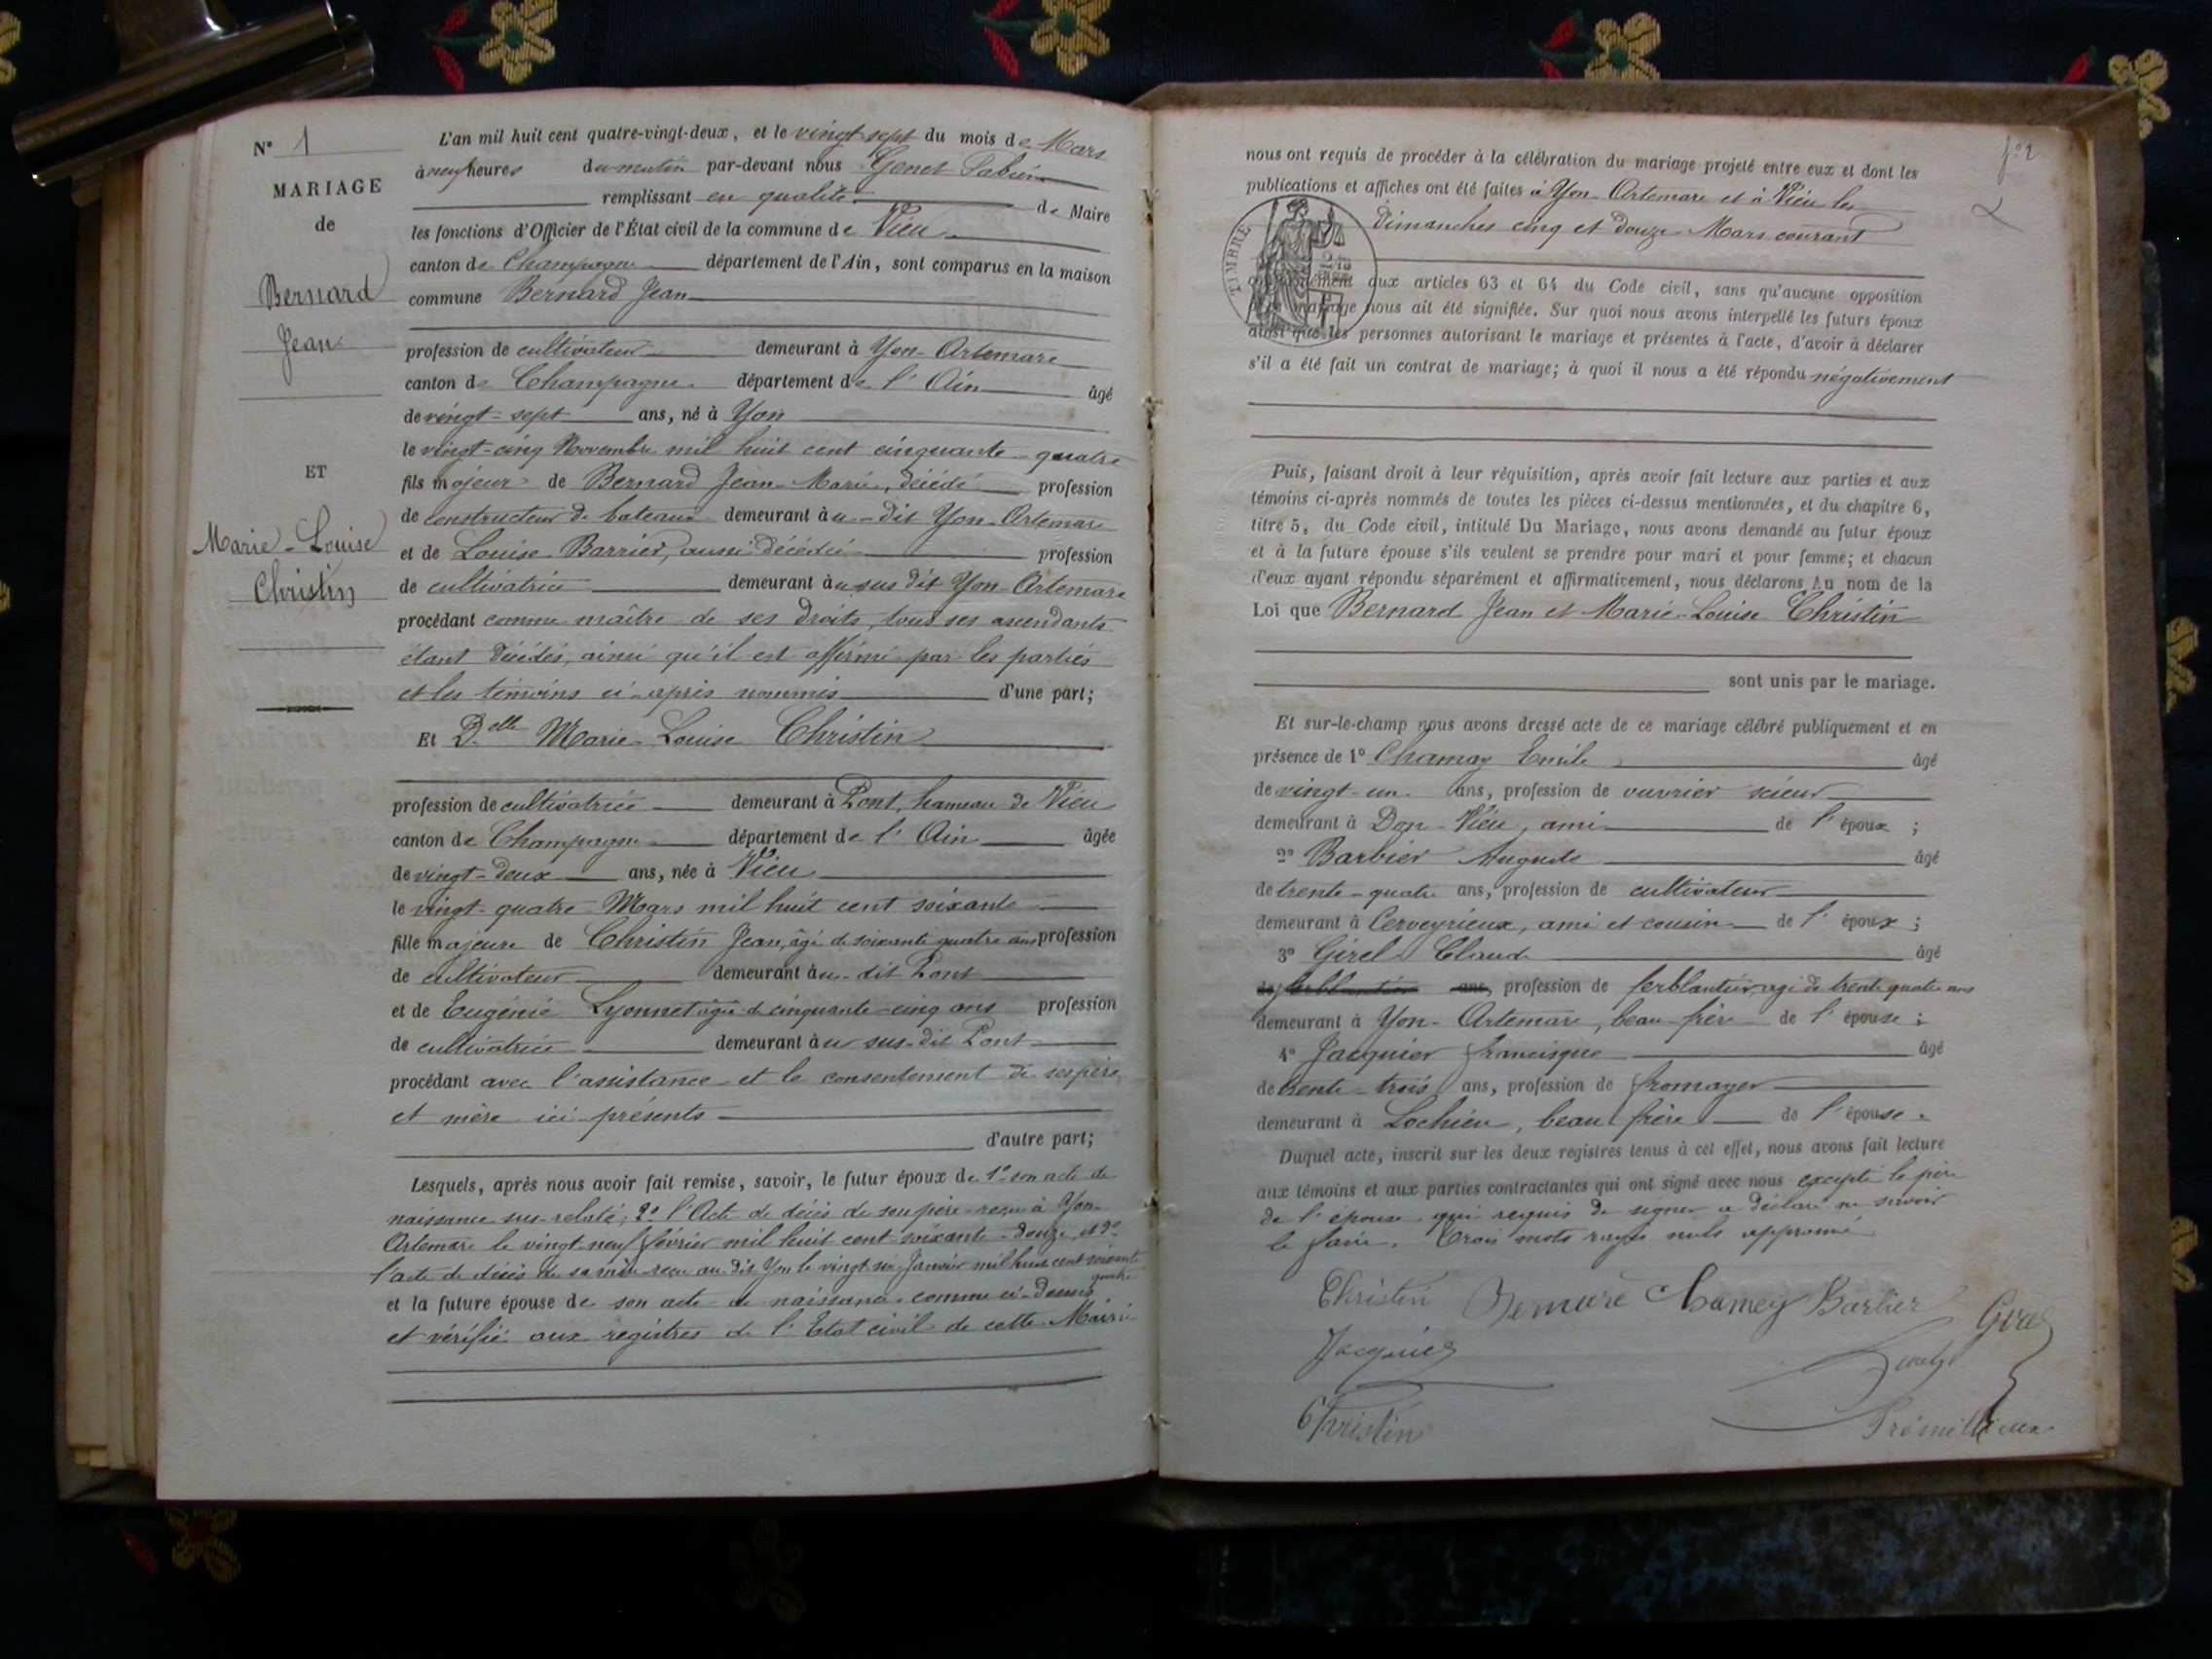 N° 1
MARIAGE
de
Bernard
Jean
ET
Marie-Louise
Christin
L'an mil huit cent quatre-vingt-deux, et le vingt sept du mois de Mars
à neuf heures du matin par-devant nous Genet Fabien
remplissant en qualité de Maire
les fonctions d'Officier de l'État civil de la commune de Vieu
canton de Champagne département de l'Ain, sont comparus en la maison
commune Bernard Jean
profession de cultivateur demeurant à Yon-Artemare
canton de Champagne département de l'Ain âgé
de vingt-sept ans, né à Yon
le vingt-cinq Novembre mil huit cent cinquante-quatre
fils majeur de Bernard Jean-Marie, décédé profession
de constructeur de bateaux demeurant à u-dit Yon-Artemare
et de Louise Barrier, aussi décédée profession
de cultivatrice demeurant à u sus dit Yon-Artemare
procédant comme maître de ses droits, tous ses ascendants
étant décédés, ainsi qu'il est affirmé par les parties
et les témoins ci-après nommés d'une part;
Et Delle Marie-Louise Christin
profession de cultivatrice demeurant à Pont, hameau de Vieu
canton de Champagne département de l'Ain âgée
de vingt-deux ans, née à Vieu
le vingt-quatre Mars mil huit cent soixante
fille majeure de Christin Jean, âgé de soixante quatre ans profession
de cultivateur demeurant à u-dit Pont
et de Eugénie Lyonnet âgée de cinquante-cinq ans profession
de cultivatrice demeurant à u sus-dit Pont
procédant avec l'assistance et le consentement de ses père
et mère ici présents
d'autre part;
Lesquels, après nous avoir fait remise, savoir, le futur époux de 1° son acte de
naissance sus-relaté; 2° l'Acte de décès de son père reçu à Yon-
Artemare le vingt-neuf février mil huit cent soixante-douze, et 3°
l'acte de décès de sa mère reçu au dit Yon le vingt six Janvier mil huit cent soixante
quatre
et la future épouse de son acte de naissance comme ci-dessus
et vérifié aux registres de l'Etat civil de cette Mairie
f° 2
nous ont requis de procéder à la célébration du mariage projeté entre eux et dont les
publications et affiches ont été faites à Yon-Artemare et à Vieu les
Dimanches cinq et douze Mars courant
TIMBRE
aux articles 63 et 64 du Code civil, sans qu'aucune opposition
mariage nous ait été signifiée. Sur quoi nous avons interpellé les futurs époux
ainsi que les personnes autorisant le mariage et présentes à l'acte, d'avoir à déclarer
s'il a été fait un contrat de mariage; à quoi il nous a été répondu négativement
Puis, faisant droit à leur réquisition, après avoir fait lecture aux parties et aux
témoins ci-après nommés de toutes les pièces ci-dessus mentionnées, et du chapitre 6,
titre 5, du Code civil, intitulé Du Mariage, nous avons demandé au futur époux
et à la future épouse s'ils veulent se prendre pour mari et pour femme; et chacun
d'eux ayant répondu séparément et affirmativement, nous déclarons Au nom de la
Loi que Bernard Jean et Marie-Louise Christin
sont unis par le mariage.
Et sur-le-champ nous avons dressé acte de ce mariage célébré publiquement et en
présence de 1° Chamay Emile âgé
de vingt-un ans, profession de ouvrier scieur
demeurant à Don-Vieu, ami de l'époux ;
2° Barbier Auguste âgé
de trente-quatre ans, profession de cultivateur
demeurant à Cerveyrieux, ami et cousin de l'époux ;
3° Girel Claude âgé
de ferblantier ans, profession de ferblantier, âgé de trente quatre ans
demeurant à Yon-Artemare, beau-frère de l'épouse ;
4° Jacquier francisque âgé
de trente-trois ans, profession de fromager
demeurant à Lochieu, beau frère de l'épouse.
Duquel acte, inscrit sur les deux registres tenus à cet effet, nous avons fait lecture
aux témoins et aux parties contractantes qui ont signé avec nous excepté le père
de l'épouse qui requis de signer a déclaré ne savoir
le faire. Trois mots rayés nuls approuvé
Christin Chamey Barbier Girel
Jacquier
Christin